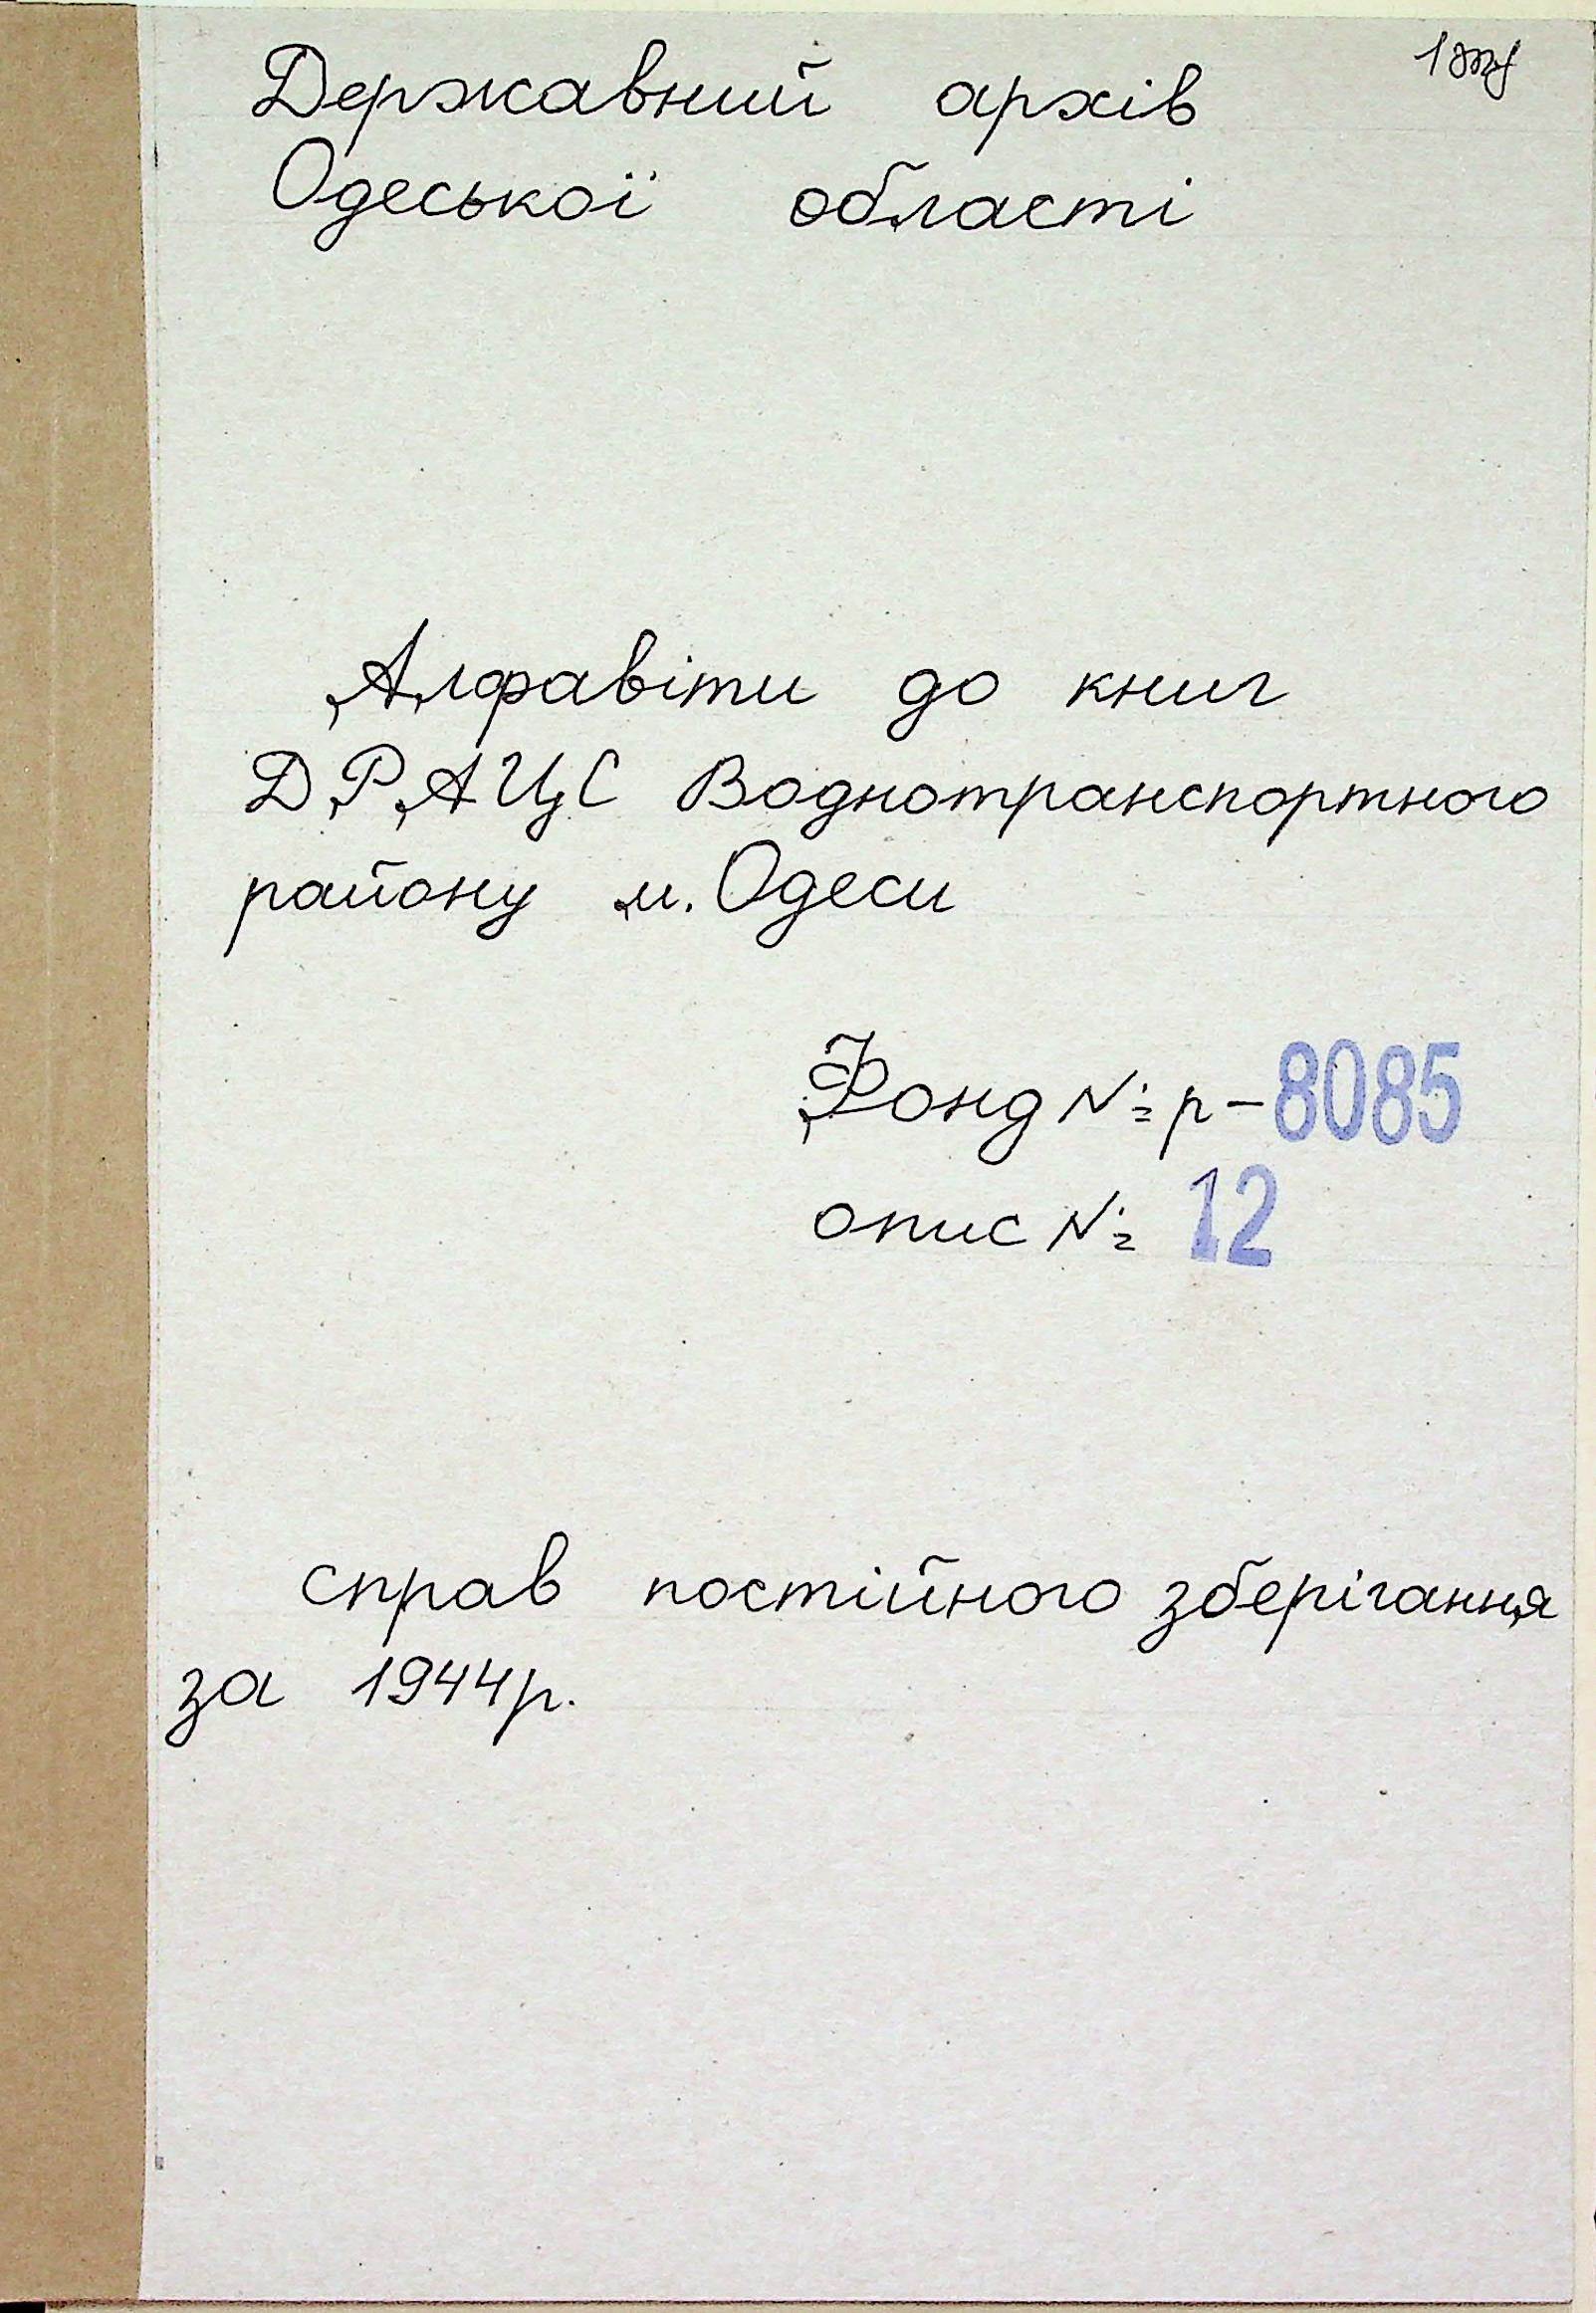 Державний архів
Одеської області
Алфавіти до книг
ДРАЦС Воднотранспортного
району м. Одеси
Фонд № р-8085
опис № 12
справ постійного зберігання
за 1944р.